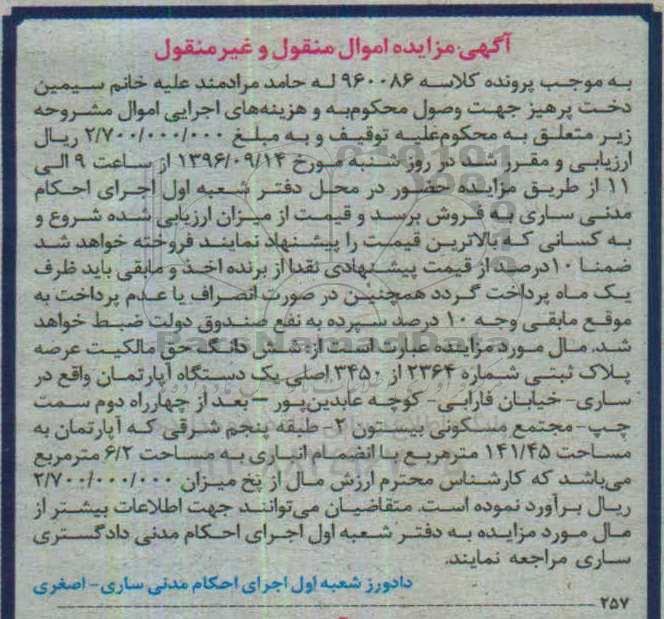 آگهی مزایده اموال منقول و غیر منقول
به موجب پرونده کلاسه ۹۶۰۰۸۶ له حامد مرادمند علیه خانم سیمین
دخت پرهیز جهت وصول محکوم‌به و هزینه‌های اجرایی اموال مشروحه
زیر متعلق به محکوم‌علیه توقیف و به مبلغ ۲/۷۰۰/۰۰۰/۰۰۰ ریال
ارزیابی و مقرر شد در روز شنبه مورخ ۱۳۹۶/۰۹/۱۴ از ساعت ۹ الی
۱۱ از طریق مزایده حضور در محل دفتر شعبه اول اجرای احکام
مدنی ساری به فروش برسد و قیمت از میزان ارزیابی شده شروع و
به کسانی که بالاترین قیمت را پیشنهاد نمایند فروخته خواهد شد
ضمنا ۱۰درصد از قیمت پیشنهادی نقدا از برنده اخذ و مابقی باید ظرف
یک ماه پرداخت گردد همچنین در صورت انصراف یا عدم پرداخت به
موقع مابقی وجه ۱۰ درصد سپرده به نفع صندوق دولت ضبط خواهد
شد. مال مورد مزایده عبارت است از: شش دانگ حق مالکیت عرصه
پلاک ثبتی شماره ۲۳۶۴ از ۳۴۵۰ اصلی یک دستگاه آپارتمان واقع در
ساری- خیابان فارابی- کوچه عابدین‌پور – بعد از چهارراه دوم سمت
چپ- مجتمع مسکونی بیستون ۲- طبقه پنجم شرقی که آپارتمان به
مساحت ۱۴۱/۴۵ مترمربع با انضمام انباری به مساحت ۶/۲ مترمربع
می‌باشد که کارشناس محترم ارزش مال از نخ میزان ۲/۷۰۰/۰۰۰/۰۰۰
ریال برآورد نموده است. متقاضیان می‌توانند جهت اطلاعات بیشتر از
مال مورد مزایده به دفتر شعبه اول اجرای احکام مدنی دادگستری
ساری مراجعه نمایند.
دادورز شعبه اول اجرای احکام مدنی ساری- اصغری
۲۵۷
ParsNamadData